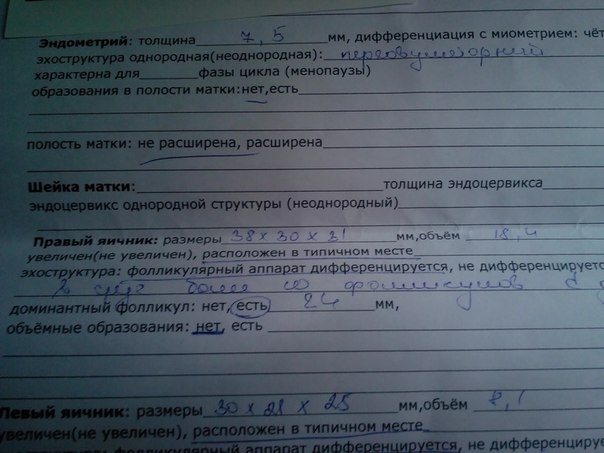 Эндометрий: толщина 7,5 мм, дифференциация с миометрием: чёт
эхоструктура однородная(неоднородная):
характерна для фазы цикла (менопаузы)
образования в полости матки:нет,есть
полость матки: не расширена, расширена
Шейка матки: толщина эндоцервикса
эндоцервикс однородной структуры (неоднородный)
Правый яичник: размеры 38 х 30 х 31 мм,объём 18,4
увеличен(не увеличен), расположен в типичном месте
эхоструктура: фолликулярный аппарат дифференцируется, не дифференцируетс
более 10 фолликулов
доминантный фолликул: нет, есть 24 мм,
объёмные образования: нет, есть
Левый яичник: размеры 30 х 21 х 25 мм,объём 8,1
увеличен(не увеличен), расположен в типичном месте
фолликулярный аппарат дифференцируется, не дифференцир